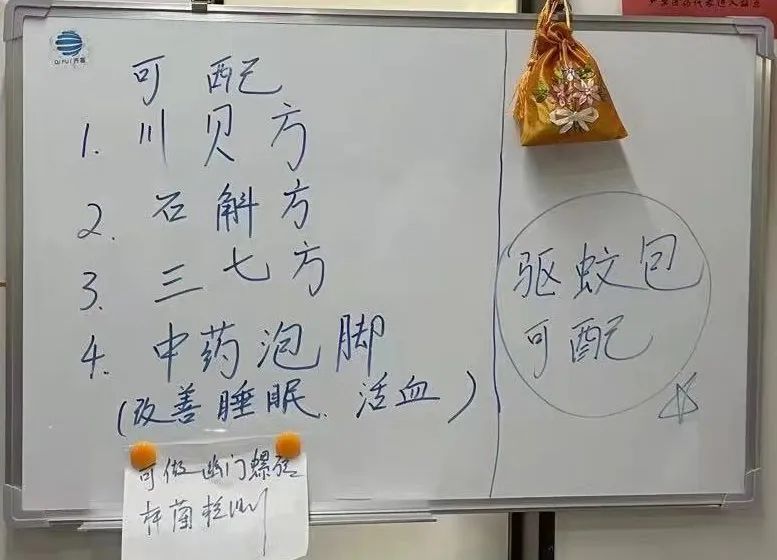 可配
1. 川贝方
2. 石斛方
3. 三七方
4. 中药泡脚
(改善睡眠、活血)
可做幽门螺旋
杆菌检测
驱蚊包
可配